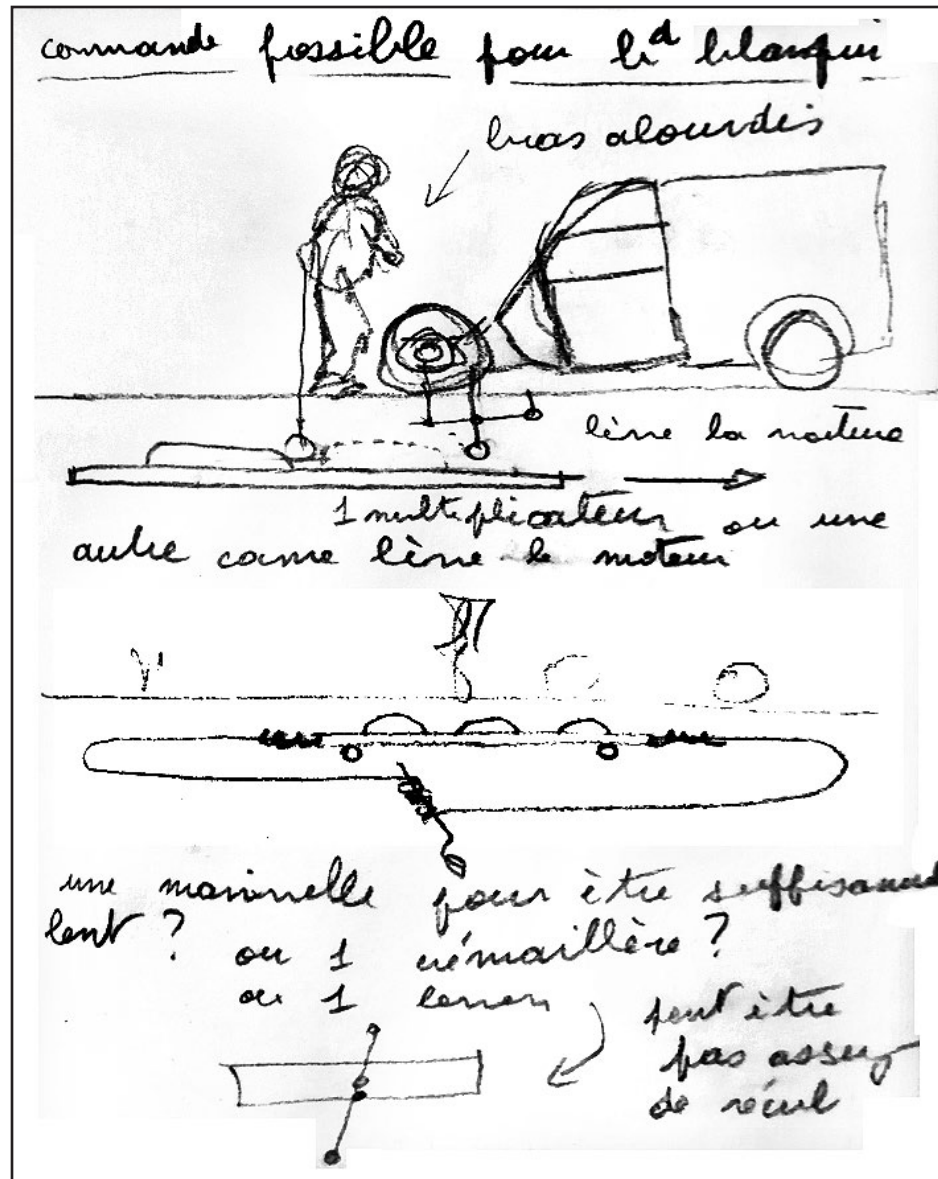 commande possible pour bd blanqui
bras alourdis
lève la voiture
1 multiplicateur ou une
autre came lève le moteur
une manivelle pour être suffisamment
lent ? ou 1 crémaillère ?
ou 1 levier
peut être
pas assez
de recul